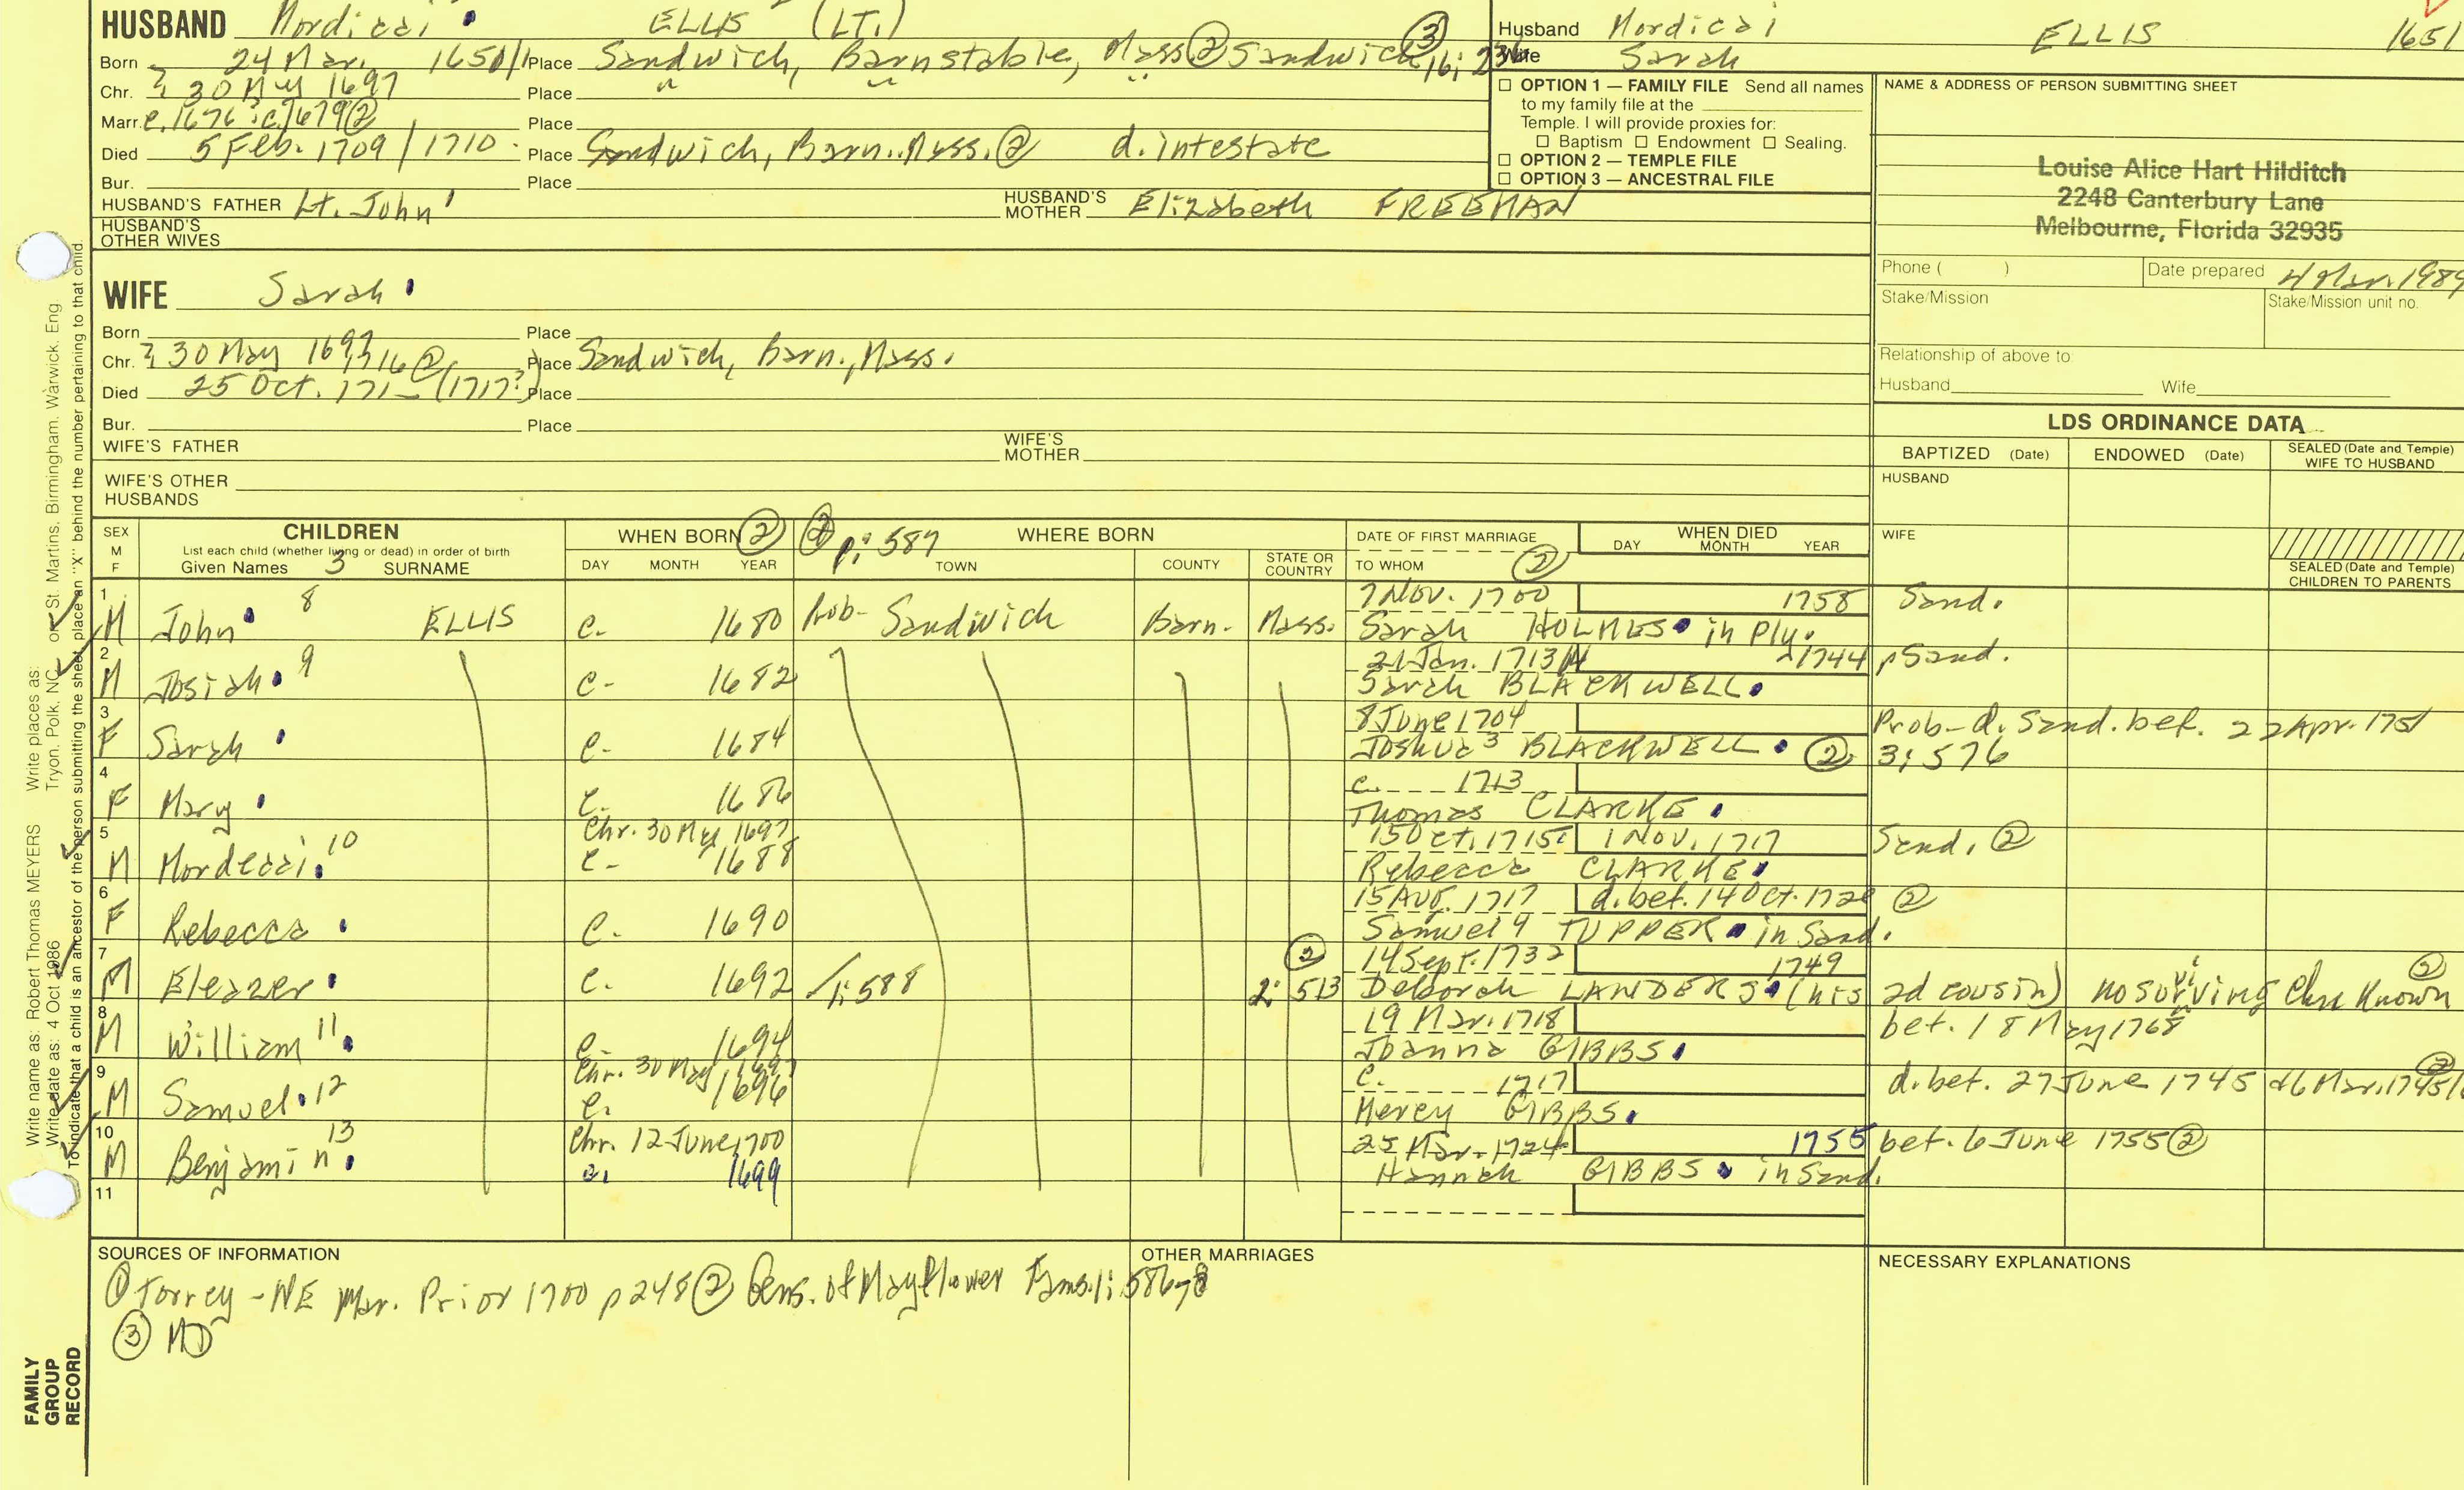 HUSBAND Mordicai ELLIS (LT.)
Born 24 Mar. 1650/1 Place Sandwich, Barnstable, Mass ② Sandwich ③ 16; 236
Chr. ? 30 May 1697 Place
Marr. c. 1676 ? c. 1679 ② Place
Died 5 Feb. 1709/1710 Place Sandwich, Barn. Mass. ② d. intestate
Bur. Place
HUSBAND'S FATHER Lt. John HUSBAND'S MOTHER Elizabeth FREEMAN
HUSBAND'S OTHER WIVES
Husband Mordicai ELLIS 1651
Wife Sarah
☐ OPTION 1 — FAMILY FILE Send all names
to my family file at the
Temple. I will provide proxies for:
☐ Baptism ☐ Endowment ☐ Sealing.
☐ OPTION 2 — TEMPLE FILE
☐ OPTION 3 — ANCESTRAL FILE
NAME & ADDRESS OF PERSON SUBMITTING SHEET
Louise Alice Hart Hilditch
2248 Canterbury Lane
Melbourne, Florida 32935
Phone ( ) Date prepared 4 Mar. 1989
Stake/Mission Stake/Mission unit no.
Relationship of above to:
Husband Wife
WIFE Sarah
Born Place
Chr. ? 30 May 1697 Place Sandwich, Barn., Mass.
Died 25 Oct. 171_ (1717?) Place
716 ②
Bur. Place
WIFE'S FATHER WIFE'S MOTHER
WIFE'S OTHER HUSBANDS
LDS ORDINANCE DATA
BAPTIZED (Date) ENDOWED (Date) SEALED (Date and Temple) WIFE TO HUSBAND
HUSBAND
WIFE
SEALED (Date and Temple) CHILDREN TO PARENTS
SEX M F
CHILDREN
List each child (whether living or dead) in order of birth
Given Names 3 SURNAME
WHEN BORN ②
DAY MONTH YEAR
② p; 587 WHERE BORN
TOWN COUNTY STATE OR COUNTRY
DATE OF FIRST MARRIAGE
TO WHOM ②
WHEN DIED
DAY MONTH YEAR
1 M John 8 ELLIS c. 1680 Prob- Sandwich Barn. Mass. 7 Nov. 1700 1758 Sand.
Sarah HOLMES in Ply.
2 M Josiah 9 c- 1682 21 Jan. 1713/14 1744 Sand.
Sarah BLACKWELL
3 F Sarah c- 1684 8 June 1704 Prob- d. Sand. bef. 22 Apr. 1751
Joshua 3 BLACKWELL ② 3; 576
4 F Mary c. 1686 c. 1713
Thomas CLARKE
5 M Mordecai 10 Chr. 30 May 1697 15 Oct. 1715 1 Nov. 1717 Sand. ②
c- 1688 Rebecca CLARKE
6 F Rebecca c. 1690 15 Aug. 1717 d. bet. 14 Oct. 1720 ②
Samuel 4 TUPPER in Sand.
7 M Eleazer c. 1692 1; 588 ② 2: 513 14 Sept. 1732 1749
Deborah LANDERS (his 2d cousin) no surviving Chn Known ②
8 M William 11 c. 1694 19 Mar. 1718 bet. 18 May 1768
Joanna GIBBS
9 M Samuel 12 Chr. 30 May 1697 c. 1717 d. bet. 27 June 1745 & 6 Mar. 1745/ ②
c. 1696 Mercy GIBBS
10 M Benjamin 13 Chr. 12 June 1700 25 Mar. 1724 1755 bet. 6 June 1755 ②
c. 1699 Hannah GIBBS in Sand.
11
SOURCES OF INFORMATION
① Torrey - NE Mar. Prior 1700 p 248 ② Gens. of Mayflower Fams. 1; 586-8
③ MD
OTHER MARRIAGES
NECESSARY EXPLANATIONS
Write name as: Robert Thomas MEYERS Write places as:
Write date as: 4 Oct 1986 Tryon, Polk, NC or St. Martins, Birmingham, Warwick, Eng
To indicate that a child is an ancestor of the person submitting the sheet, place an "X" behind the number pertaining to that child.
FAMILY
GROUP
RECORD